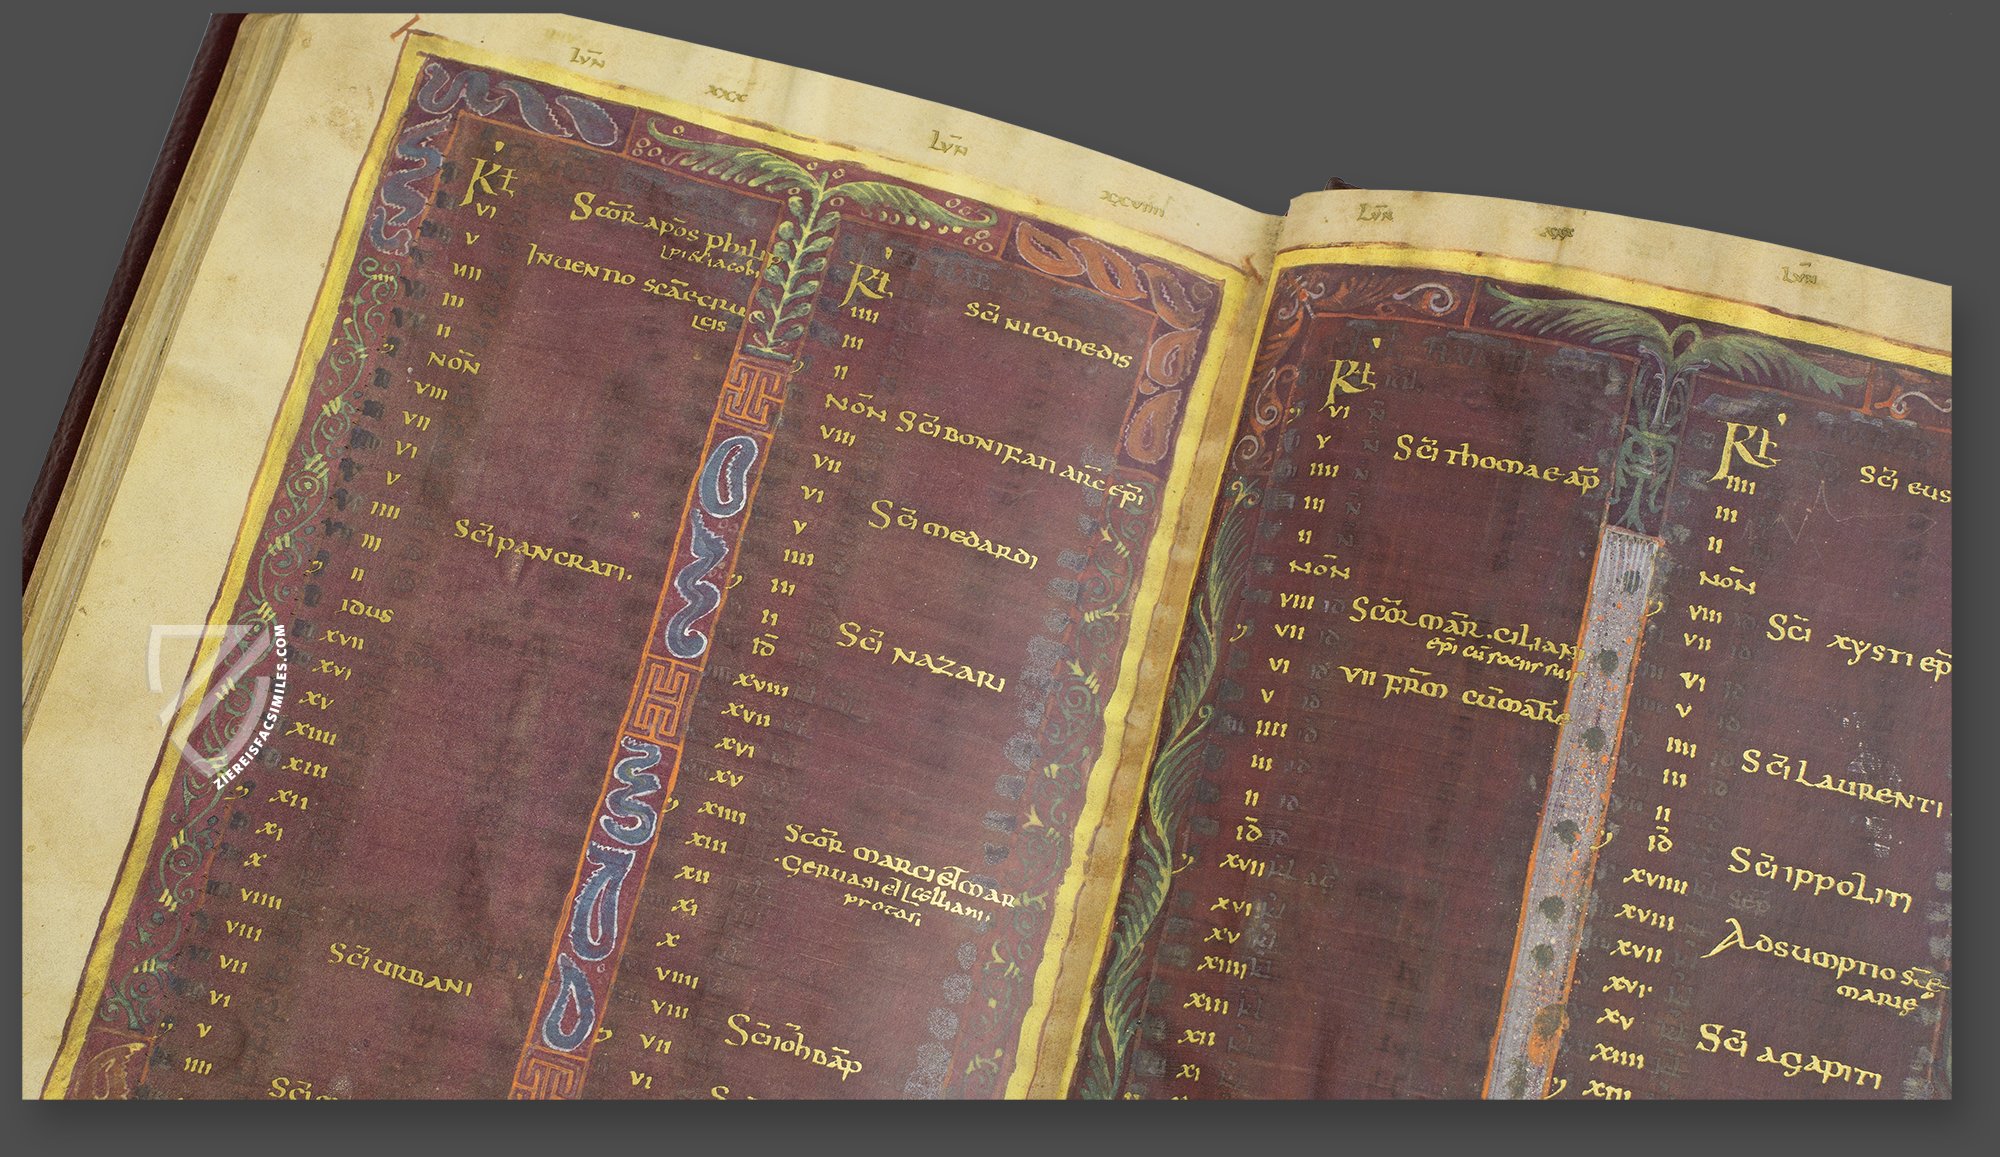 Lūn
xxx
Kł
vi
Scōr apōs phili
Lpi&iacobi
v
Inuentio scāecruc
Lcis
iiii
iii
ii
Nōn
viii
vii
vi
v
iiii
iii
Sc̄i pancrati.
ii
idus
xvii
xvi
xv
xiiii
xiii
xii
xi
x
viiii
viii
vii
Sc̄i urbani
vi
v
iiii
Lūn
xxviiii
Kł
iiii
Sc̄i nicomedis
iii
ii
Nōn Sc̄i bonifatī arc ep̄i
viii
vii
vi
Sc̄i medardi
v
iiii
iii
ii
īd
Sc̄i nazarii
xviii
xvii
xvi
xv
xiiii
xiii
Scōr marci et mar
Geruasi et
protasi
xii
xi
x
viiii
viii
vii
Sc̄i ioh bāp
vi
Lūn
xxx
Kł
vi
v
Sc̄i thomae ap̄
iiii
iii
ii
Nōn
viii
Scōr mār. ciliani
ep̄i cū sociis suis
vii
vi
vii frm̄ cūmatre
v
iiii
iii
ii
īd
xvii
xvi
xv
xiiii
xiii
xii
xi
Lūn
Kł
iiii
Sc̄i eus
iii
ii
Nōn
viii
Sc̄i xysti ep̄
vii
vi
v
iiii
Sc̄i Laurenti
iii
ii
īd
Sc̄i ippoliti
xviiii
xviii
Adsumptio scē
marię
xvii
xvi
xv
Sc̄i agapiti
xiiii
xiii
ZIEREISFACSIMILES.COM